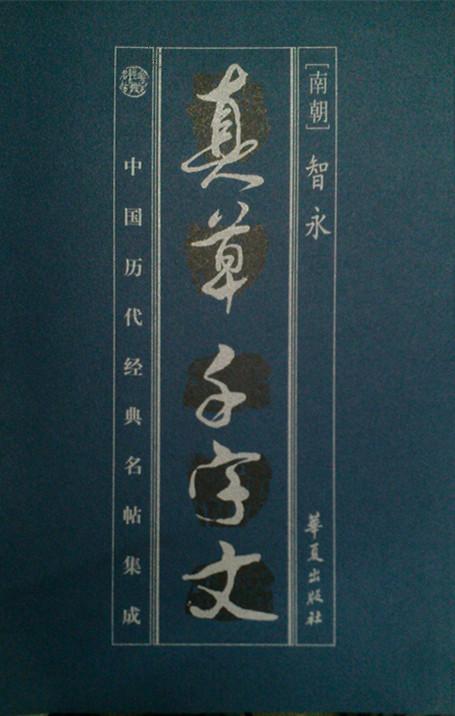 [南朝]智永
華夏出版社
真草千字文
中国历代经典名帖集成